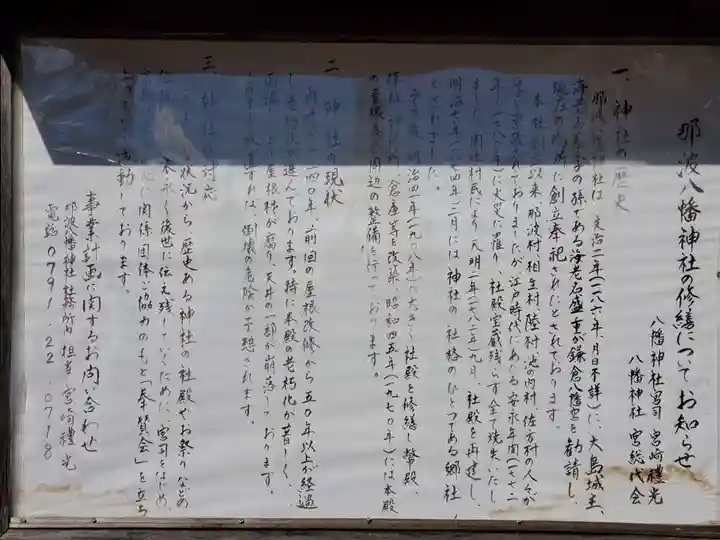 那波八幡神社の修繕についてお知らせ
八幡神社宮司 宮崎禮光
八幡神社 宮総代会
一、神社の歴史
那波八幡神社は、文治二年(一一八六年、月日不詳)に、大島城主、
海老名家季の孫である海老名盛重が鎌倉八幡宮を勧請し、
現在の場所に創立奉祀されたとされております。
本社創立以来、那波村、相生村、陸村、池の内村、佐方村の人々が
年間(一七七二
年~一七八一年)に火災に罹り、社殿宝蔵残らず全て焼失いたし
ました。関社村民により天明二年(一七八二年)九月、社殿を再建し、
明治七年(一八七四年)二月には神社の社格のひとつである郷社
とされました。
その後、明治四一年(一九〇八年)に大きく社殿を修繕し幣殿、
倉庫等を改築、昭和四五年(一九七〇年)には本殿
の屋根及び周辺の整備を行っております。
二、神社の現状
前回の屋根改修から五〇年以上が経過
し老朽化が進んでおります。特に本殿の老朽化が著しく、
雨漏りにより屋根材が腐り、天井の一部が崩落しております。
倒壊の危険が予想されます。
三、神社の対応
状況から、歴史ある神社の社殿やお祭りなどの
末永く後世に伝え残していくために、宮司をはじめ、
関係団体ご協力のもと「奉賛会」を立ち
上げ 活動しております。
事業計画に関するお問い合わせ
那波八幡神社 社務所内 担当 宮崎禮光
電話 0791-22-0718